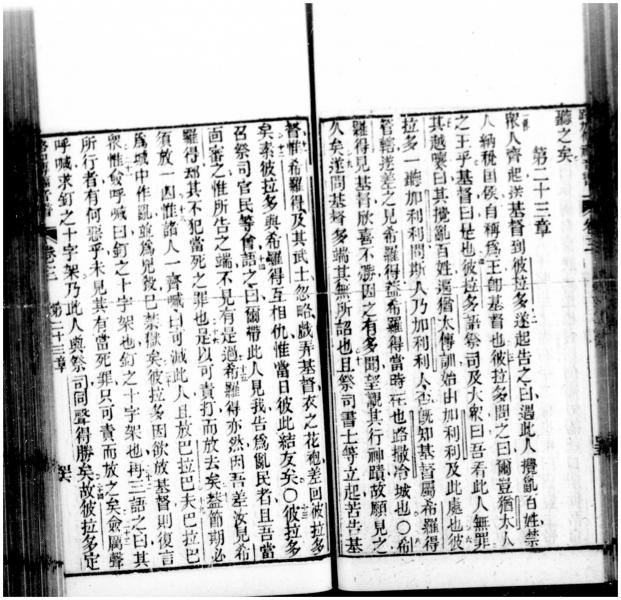 聽之矣
第二十三章
衆人齊起送基督到彼拉多遂起告之曰遇此人攪亂百姓禁
人納稅因侯自稱為王創基督也彼拉多問之曰爾豈猶太人
之王乎基督曰是也彼拉多語祭司及大衆曰吾看此人無罪
其越嚷曰其攪亂百姓遍猶太傳訓始由加利利及此處也彼
拉多一聽加利利問斯人乃加利利人否旣知基督屬希羅得
管轄遂差之見希羅得蓋希羅得當時在也路撒冷城也〇希
羅得見基督欣喜不勝因之有多聞望觀其行神蹟故願見之
久矣遂問基督多端其無所詔也且祭司書士等立起苦告基
督惟希羅得及其武士忽略戲弄基督衣之花袍差回彼拉多
矣素彼拉多與希羅得互相仇惟當日彼此結友矣〇彼拉多
召祭司官民等會語之曰爾帶此人見我告為亂民者且吾當
面審之惟所告之端不見有是過希羅得亦然因吾差汝見希
羅得瑯其不犯當死之罪也是以可責打而放去矣蓋節期必
須放一囚惟諸人一齊喊曰可滅此人且放巴拉巴夫巴拉巴
為城中作亂並為兇殺已禁獄矣彼拉多因欲放基督則復言
衆惟僉呼喊曰釘之十字架也釘之十字架也再三語之曰其
所行者有何惡乎未見其有當死罪只可責而放之矣僉厲聲
呼喊求釘之十字架乃此人與祭司同聲得勝矣故彼拉多定
卷三 第二十三章